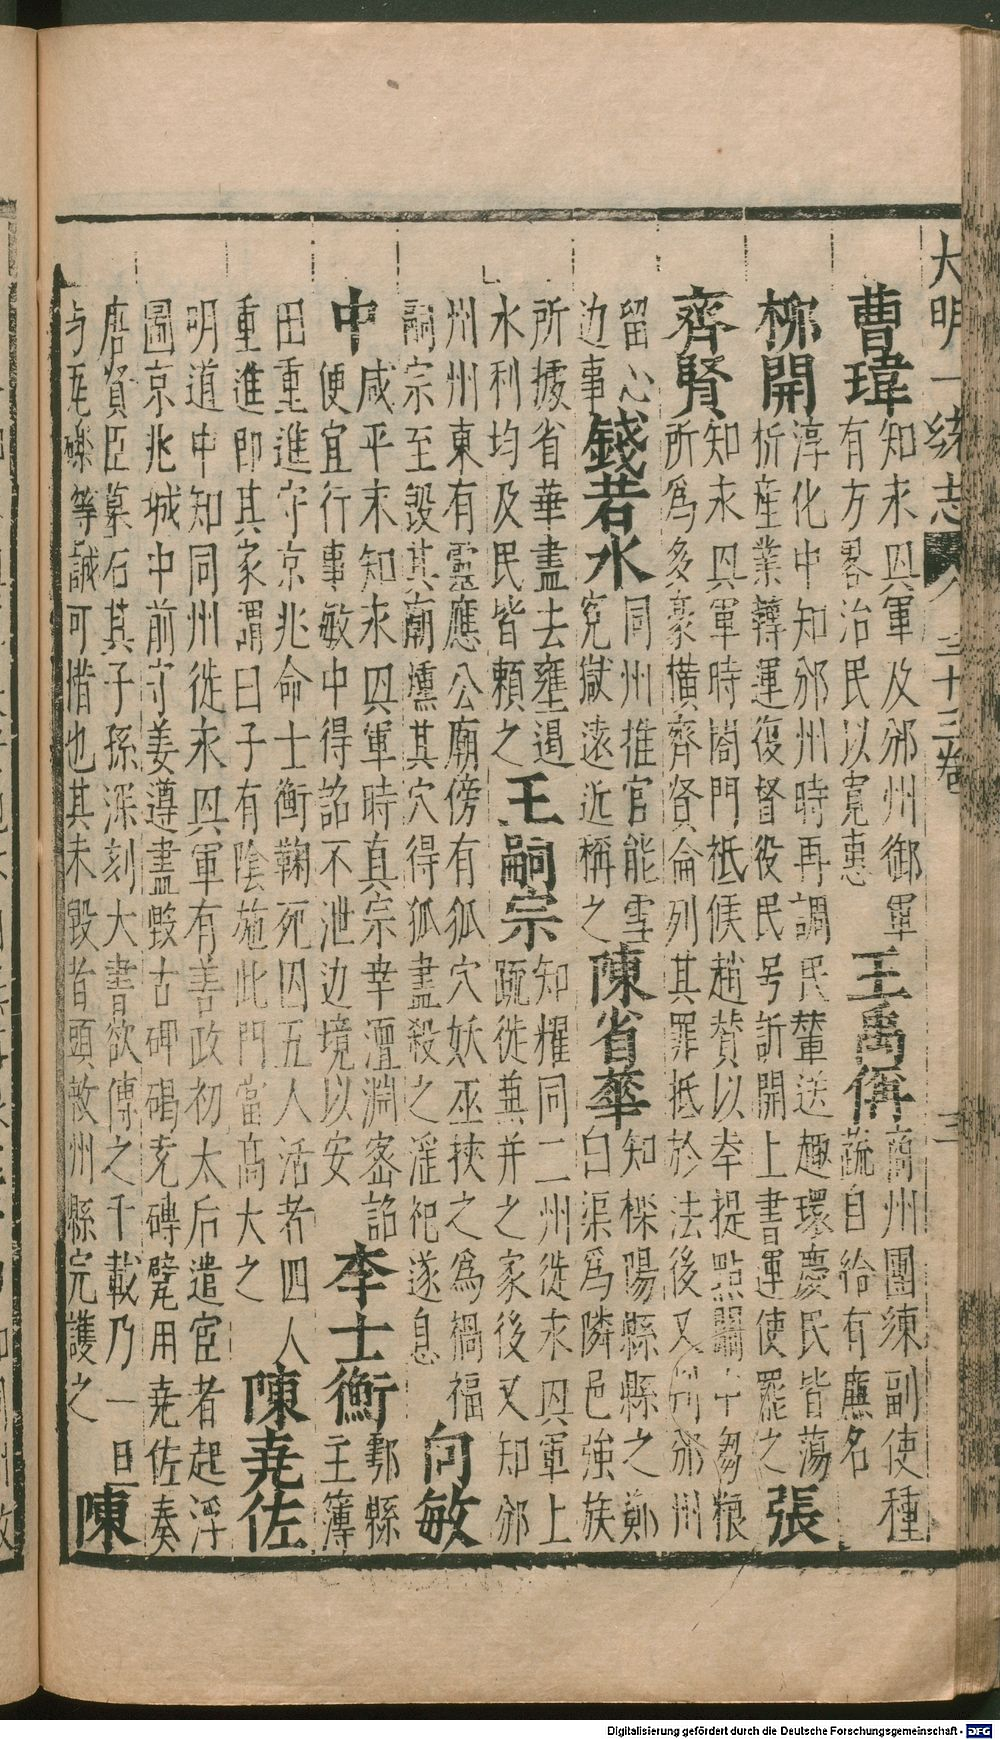 大明一統志 卷 三十三卷 三
曹瑋
知永㒷軍及邠州御軍
有方畧治民以寛惠
王禹偁
商州團練副使種
蔬自給有廉名
柳開
淳化中知邠州時再調民輦送趣環慶民皆蕩
析産業轉運復督役民号訴開上書運使罷之
張
齊賢
知永㒷軍時閤門祗候趙賛以幸提點關中芻粮
所爲多豪横齊賢論列其罪抵於法後又判邠州
留心
边事
錢若水
同州推官能雪
寃獄遠近稱之
陳省華
知櫟陽縣縣之鄭
白渠爲隣邑強族
所據省華盡去壅遏
水利均及民皆頼之
王嗣宗
知耀同二州徙永㒷軍上
疏徙兼并之家後又知邠
州州東有靈應公廟傍有狐穴妖巫挾之爲禍福
嗣宗至毀其廟燻其穴得狐盡殺之淫祀遂息
向敏
中
咸平末知永㒷軍時真宗幸澶淵密詔
便宜行事敏中得詔不泄边境以安
李士衡
鄠縣
主簿
田重進守京兆命士衡鞫死囚五人活者四人
重進即其家謂曰子有陰施此門當高大之
陳堯佐
明道中知同州徙永㒷軍有善政初太后遣宦者起浮
圖京兆城中前守姜遵盡毀古碑碣充磚甓用堯佐奏
唐賢臣墓石其子孫深刻大書欲傳之千載乃一旦
与瓦礫等誠可惜也其未毀者願敕州縣完護之
陳
Digitalisierung gefördert durch die Deutsche Forschungsgemeinschaft - DFG